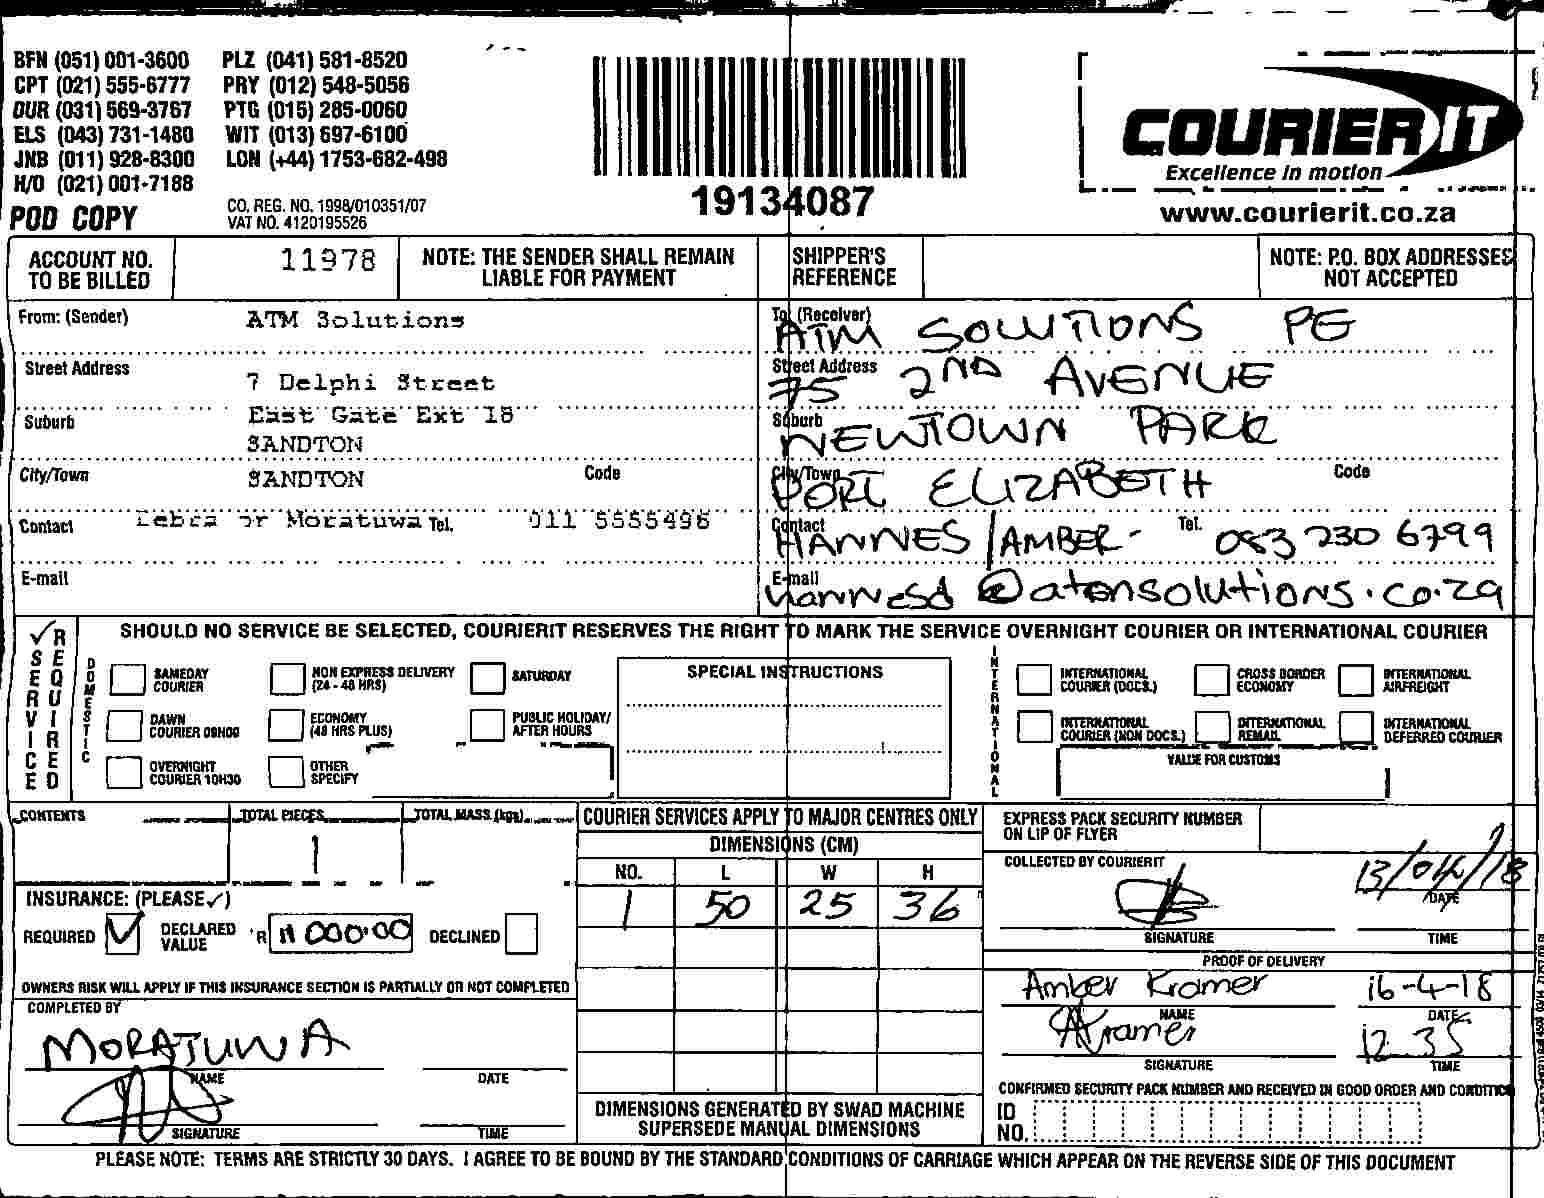 BFN (051) 001-3600 PLZ (041) 581-8520
CPT (021) 555-6777 PRY (012) 548-5056
DUR (031) 569-3767 PTG (015) 285-0060
ELS (043) 731-1480 WIT (013) 697-6100
JNB (011) 928-8300 LON (+44) 1753-682-498
H/O (021) 001-7188
POD COPY
CO. REG. NO. 1998/010351/07
VAT NO. 4120195526
19134087
COURIER IT
Excellence in motion
www.courierit.co.za
ACCOUNT NO. TO BE BILLED 11978
NOTE: THE SENDER SHALL REMAIN LIABLE FOR PAYMENT
SHIPPER'S REFERENCE
NOTE: P.O. BOX ADDRESSES NOT ACCEPTED
From: (Sender) ATM Solutions
Street Address 7 Delphi Street
Suburb East Gate Ext 18
SANDTON
City/Town SANDTON Code
Contact or Moratuwa Tel. 011 5555496
E-mail
To (Receiver) ATM SOLUTIONS PE
Street Address 75 2ND AVENUE
Suburb NEWTOWN PARK
City/Town PORT ELIZABETH Code
Contact HANNES/AMBER- Tel. 083 230 6799
E-mail
SERVICE REQUIRED
SHOULD NO SERVICE BE SELECTED, COURIERIT RESERVES THE RIGHT TO MARK THE SERVICE OVERNIGHT COURIER OR INTERNATIONAL COURIER
DOMESTIC
SAMEDAY COURIER
NON EXPRESS DELIVERY (24 - 48 HRS)
SATURDAY
DAWN COURIER 09H00
ECONOMY (48 HRS PLUS)
PUBLIC HOLIDAY/ AFTER HOURS
OVERNIGHT COURIER 10H30
OTHER SPECIFY
SPECIAL INSTRUCTIONS
INTERNATIONAL
INTERNATIONAL COURIER (DOCS.)
CROSS BORDER ECONOMY
INTERNATIONAL AIRFREIGHT
INTERNATIONAL COURIER (NON DOCS.)
INTERNATIONAL REMAIL
INTERNATIONAL DEFERRED COURIER
VALUE FOR CUSTOMS
CONTENTS
TOTAL PIECES 1
TOTAL MASS (kgs)
INSURANCE: (PLEASE ✓)
REQUIRED ✓ DECLARED VALUE R 11 000.00 DECLINED
OWNERS RISK WILL APPLY IF THIS INSURANCE SECTION IS PARTIALLY OR NOT COMPLETED
COMPLETED BY
MORATUWA
NAME DATE
SIGNATURE TIME
COURIER SERVICES APPLY TO MAJOR CENTRES ONLY
DIMENSIONS (CM)
NO. L W H
1 50 25 36
DIMENSIONS GENERATED BY SWAD MACHINE SUPERSEDE MANUAL DIMENSIONS
EXPRESS PACK SECURITY NUMBER ON LIP OF FLYER
COLLECTED BY COURIERIT
13/04/18
DATE
SIGNATURE TIME
PROOF OF DELIVERY
Amber Kramer 16-4-18
NAME DATE
AKramer 12 35
SIGNATURE TIME
CONFIRMED SECURITY PACK NUMBER AND RECEIVED IN GOOD ORDER AND CONDITION
ID NO.
PLEASE NOTE: TERMS ARE STRICTLY 30 DAYS. I AGREE TO BE BOUND BY THE STANDARD CONDITIONS OF CARRIAGE WHICH APPEAR ON THE REVERSE SIDE OF THIS DOCUMENT